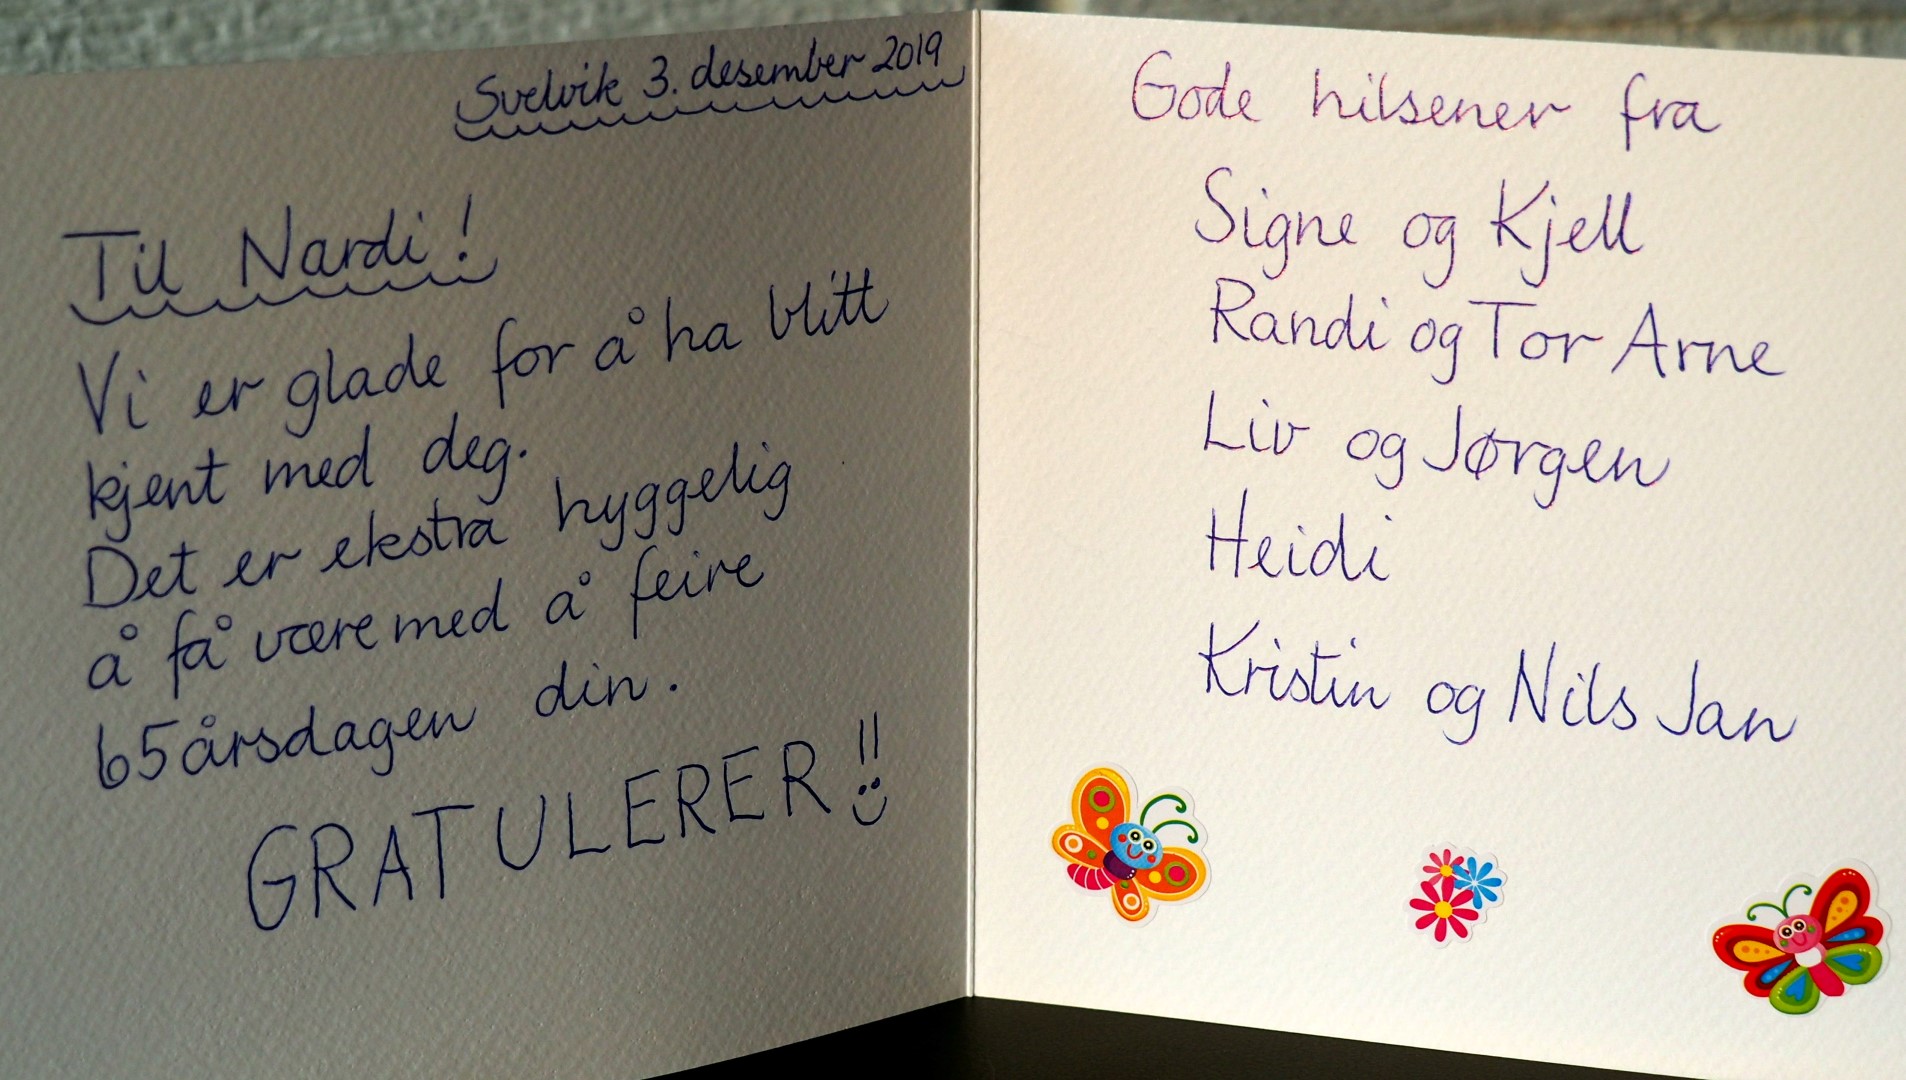 Svelvik 3. desember 2019
Til Nardi!
Vi er glade for å ha blitt
kjent med deg.
Det er ekstra hyggelig
å få være med å feire
65årsdagen din.
GRATULERER!!
Gode hilsener fra
Signe og Kjell
Randi og Tor Arne
Liv og Jørgen
Heidi
Kristin og Nils Jan